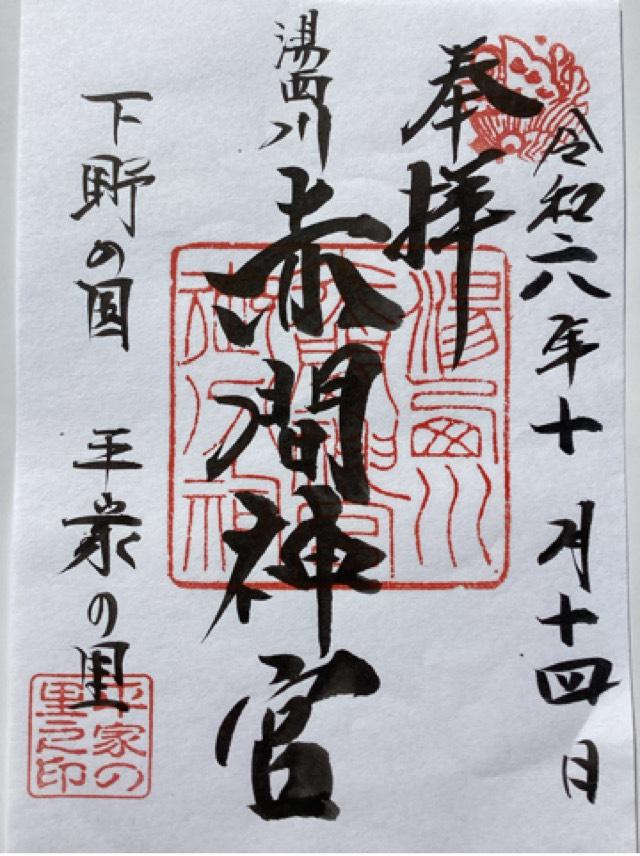 令和六年十月十四日
奉拝
湯西川
赤間神宮
下野の国 平家の里
湯西川
平家の
里之印